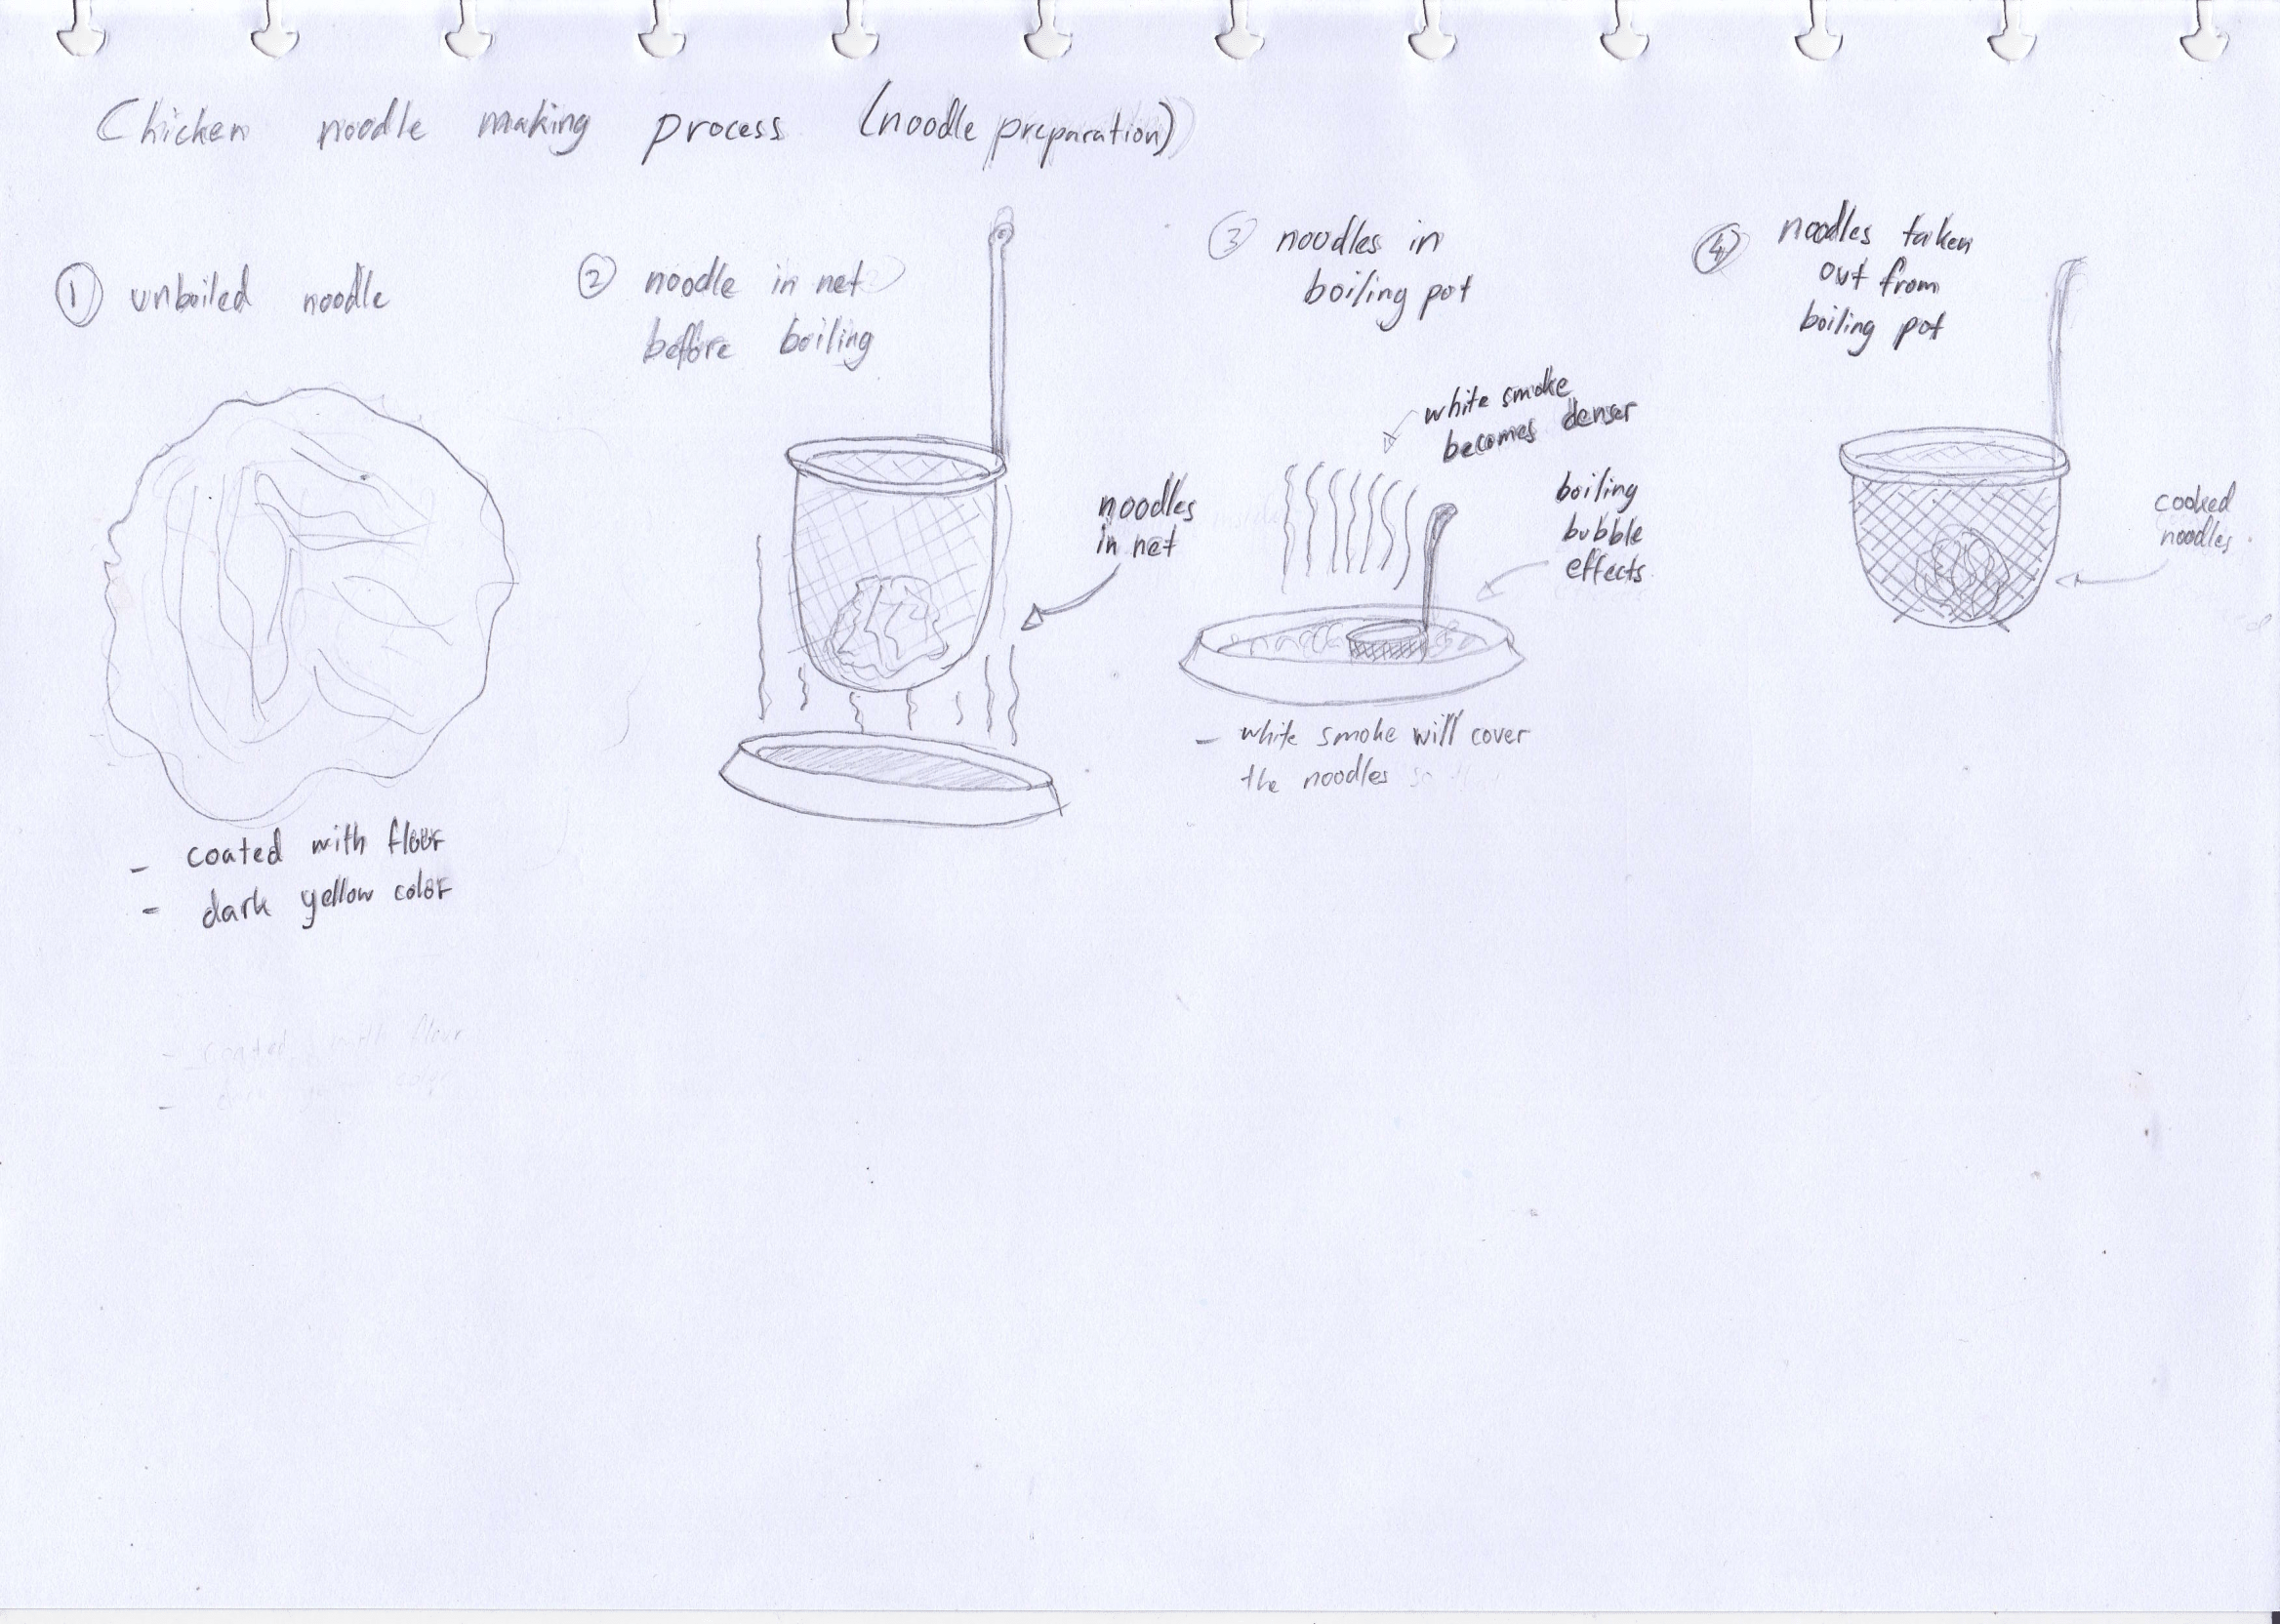 Chicken noodle making process (noodle preparation)
① unboiled noodle
- coated with flour
- dark yellow color
- coated with flour
- color
② noodle in net
before boiling
noodles
in net
③ noodles in
boiling pot
white smoke
becomes denser
boiling
bubble
effects
- white smoke will cover
the noodles
④ noodles taken
out from
boiling pot
cooked
noodles